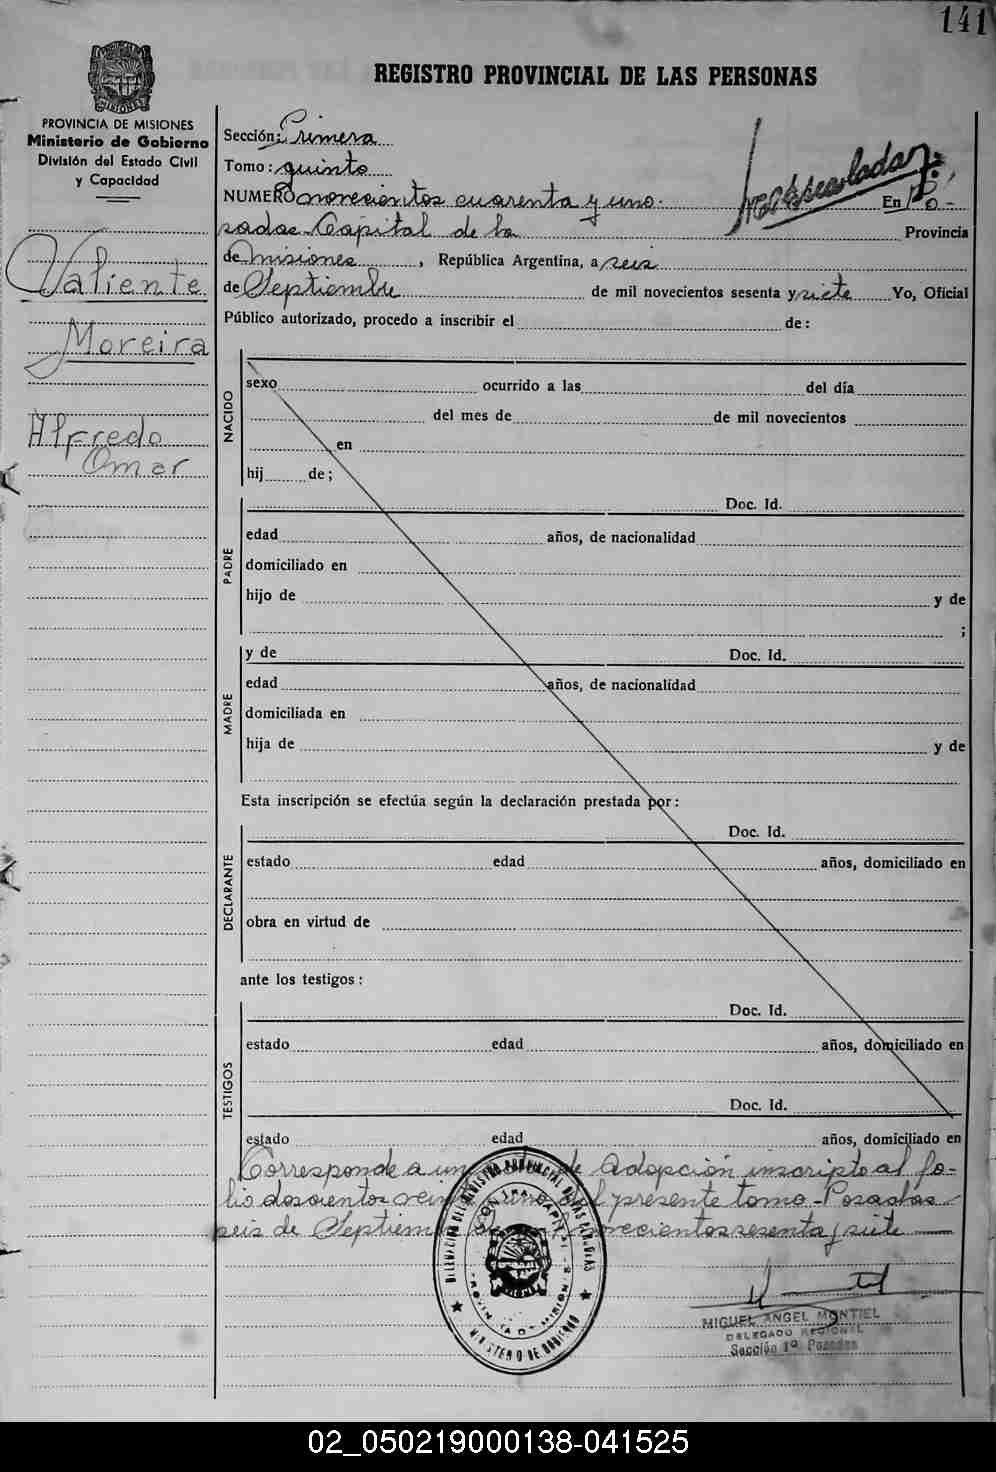 141
REGISTRO PROVINCIAL DE LAS PERSONAS
PROVINCIA DE MISIONES
Ministerio de Gobierno
División del Estado Civil
y Capacidad
Valiente
Moreira
Alfredo
Omar
Sección: Primera
Tomo: quinto
NUMERO novecientos cuarenta y uno En Po-
sadas Capital de la Provincia
de Misiones, República Argentina, a seis
de Septiembre de mil novecientos sesenta y siete Yo, Oficial
Público autorizado, procedo a inscribir el de:
NACIDO
sexo ocurrido a las del día
del mes de de mil novecientos
en
hij de;
PADRE
Doc. Id.
edad años, de nacionalidad
domiciliado en
hijo de y de
;
MADRE
y de Doc. Id.
edad años, de nacionalidad
domiciliada en
hija de y de
Esta inscripción se efectúa según la declaración prestada por:
DECLARANTE
Doc. Id.
estado edad años, domiciliado en
obra en virtud de
ante los testigos:
TESTIGOS
Doc. Id.
estado edad años, domiciliado en
Doc. Id.
estado edad años, domiciliado en
Corresponde a un de Adopción inscripto al fo-
lio doscientos presente tomo-Posadas
seis de Septiem novecientos sesenta y siete
MINISTERIO DE GOBIERNO
MISIONES
MIGUEL ANGEL MONTIEL
DELEGADO REGIONAL
Sección 1º Posadas
02_050219000138-041525